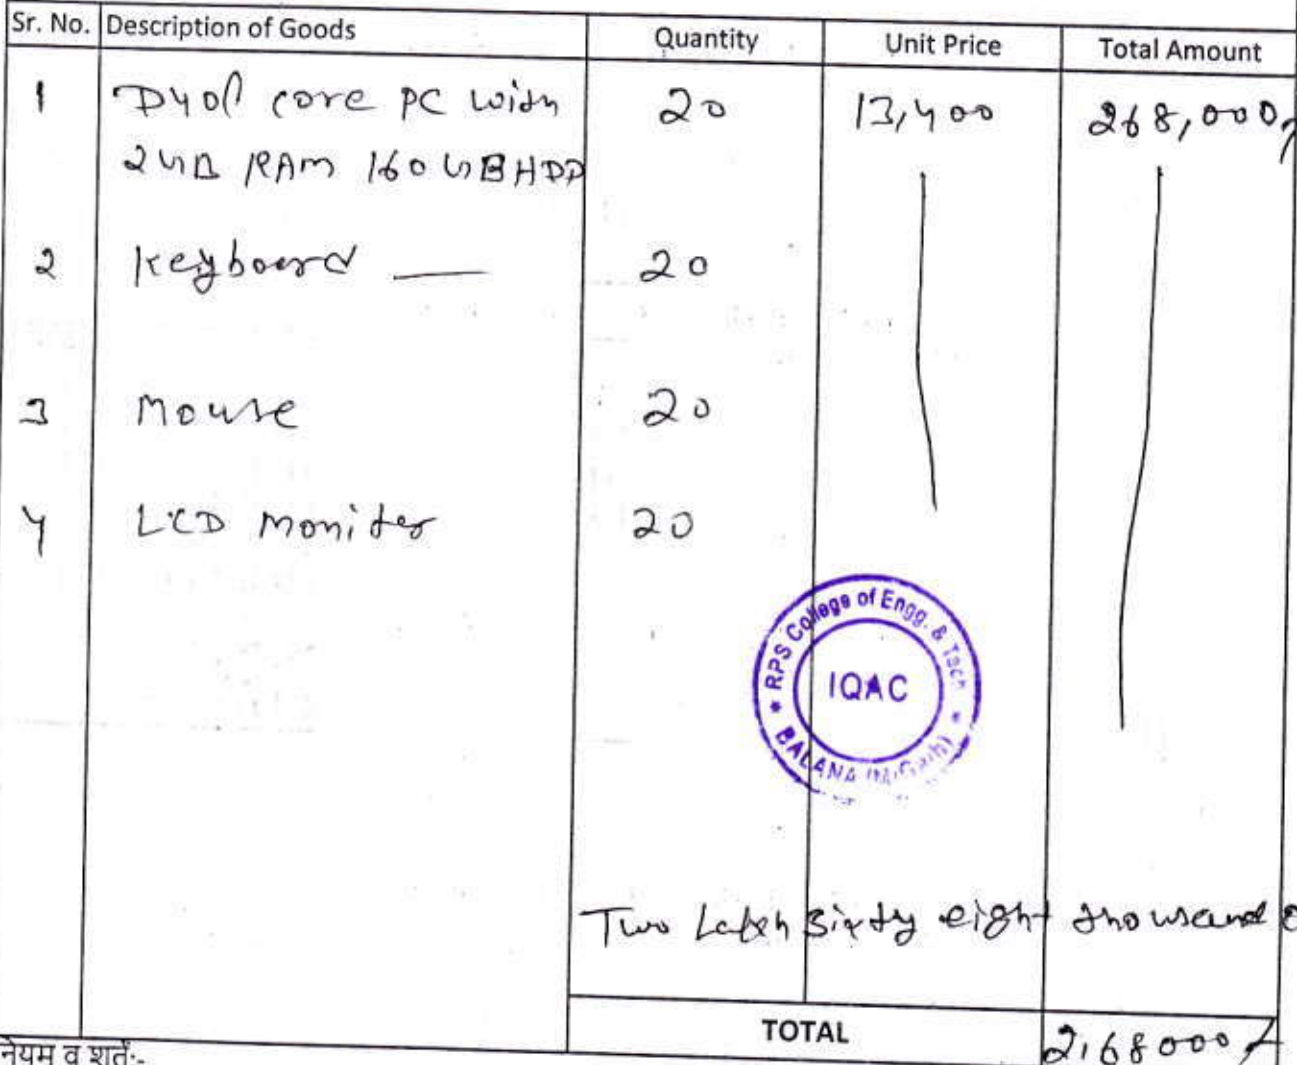 Sr. No. Description of Goods Quantity Unit Price Total Amount
1 Dual core PC with 20 13,400 268,000/
2GB RAM 160 GB HDD
2 Keyboard — 20
3 Mouse 20
4 LCD moniter 20
RPS College of Engg. & Tech
IQAC
* BALANA *
Two Lakh Sixty eight thousand
TOTAL 2,68000/
नियम व शर्तें:-